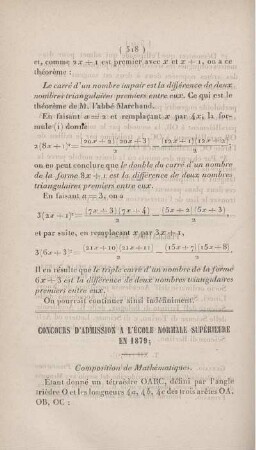 ( 518 )
et, comme 2x + 1 est premier avec x et x + 1, on a ce
théorème :
Le carré d'un nombre impair est la différence de deux
nombres triangulaires premiers entre eux. Ce qui est le
théorème de M. l'abbé Marchand.
En faisant a = 2 et remplaçant x par 4x, la for-
mule (1) donne
2(8x+1)² = (20x+2)(20x+3)/2 − (12x+1)(12x+2)/2
on peut conclure que le double du carré d'un nombre
de la forme 8x + 1 est la différence de deux nombres
triangulaires premiers entre eux.
En faisant a = 3, on a
3(2x+1)² = (7x+3)(7x+4)/2 − (5x+2)(5x+3)/2,
et par suite, en remplaçant x par 3x + 1,
3(6x+3)² = (21x+10)(21x+11)/2 − (15x+7)(15x+8)/2
Il en résulte que le triple carré d'un nombre de la forme
6x + 3 est la différence de deux nombres triangulaires
premiers entre eux.
On pourrait continuer ainsi indéfiniment.
CONCOURS D'ADMISSION A L'ÉCOLE NORMALE SUPÉRIEURE
EN 1879;
Composition de Mathématiques.
Etant donné un tétraèdre OABC, défini par l'angle
trièdre O et les longueurs 4a, 4b, 4c des trois arêtes OA,
OB, OC :